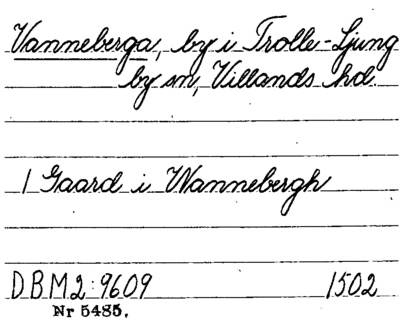 Vanneberga, by i Trolle-Ljung
by sn, Villands hd.
1 Gaard i Wannebergh
DBM2:9609 1502
Nr 5485.